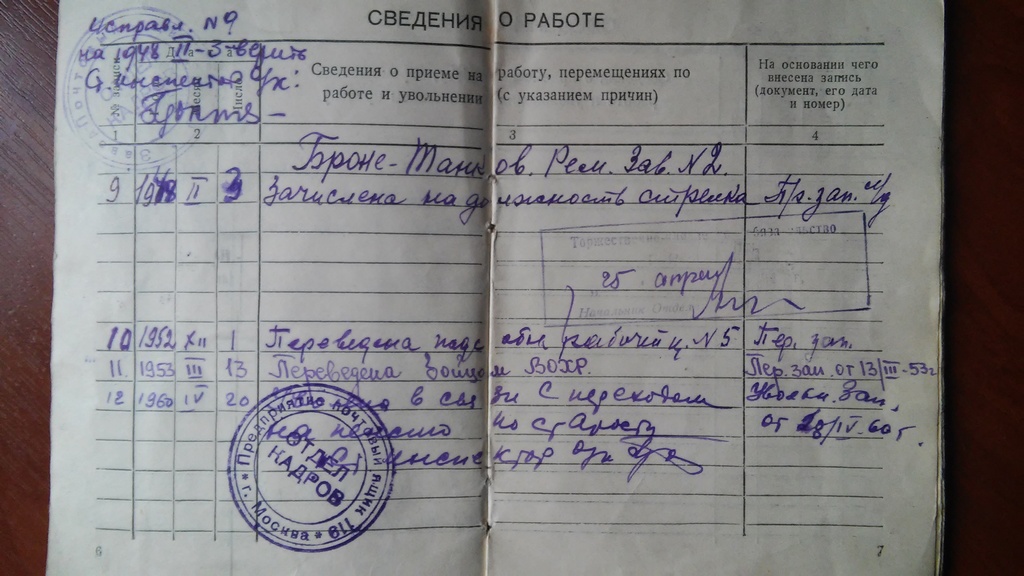 СВЕДЕНИЯ О РАБОТЕ
Исправл. №9
на 1948 II-3-верить
Ст. инспектор О/к:
Дата
Сведения о приеме на работу, перемещениях по
работе и увольнении (с указанием причин)
На основании чего
внесена запись
(документ, его дата
и номер)
1 2 3 4
Броне-Танков. Рем. Зав. №2.
9 1948 II 3 Зачислена на должность стрелка Пр. зап. л/д
25 апреля
Начальник Отдела
10 1952 XII 1 Переведена рабочий ц. №5 Пер. зап.
11 1953 III 13 Переведена бойцом ВОХР. Пер. зап. от 13/III-53г
12 1960 IV 20 в связи с переходом Увольн. зап.
на пенсию по старости от 20/IV-60г.
инспектор о/к
г. Москва * Предприятие почтовый ящик 119 *
ОТДЕЛ
КАДРОВ
6 7